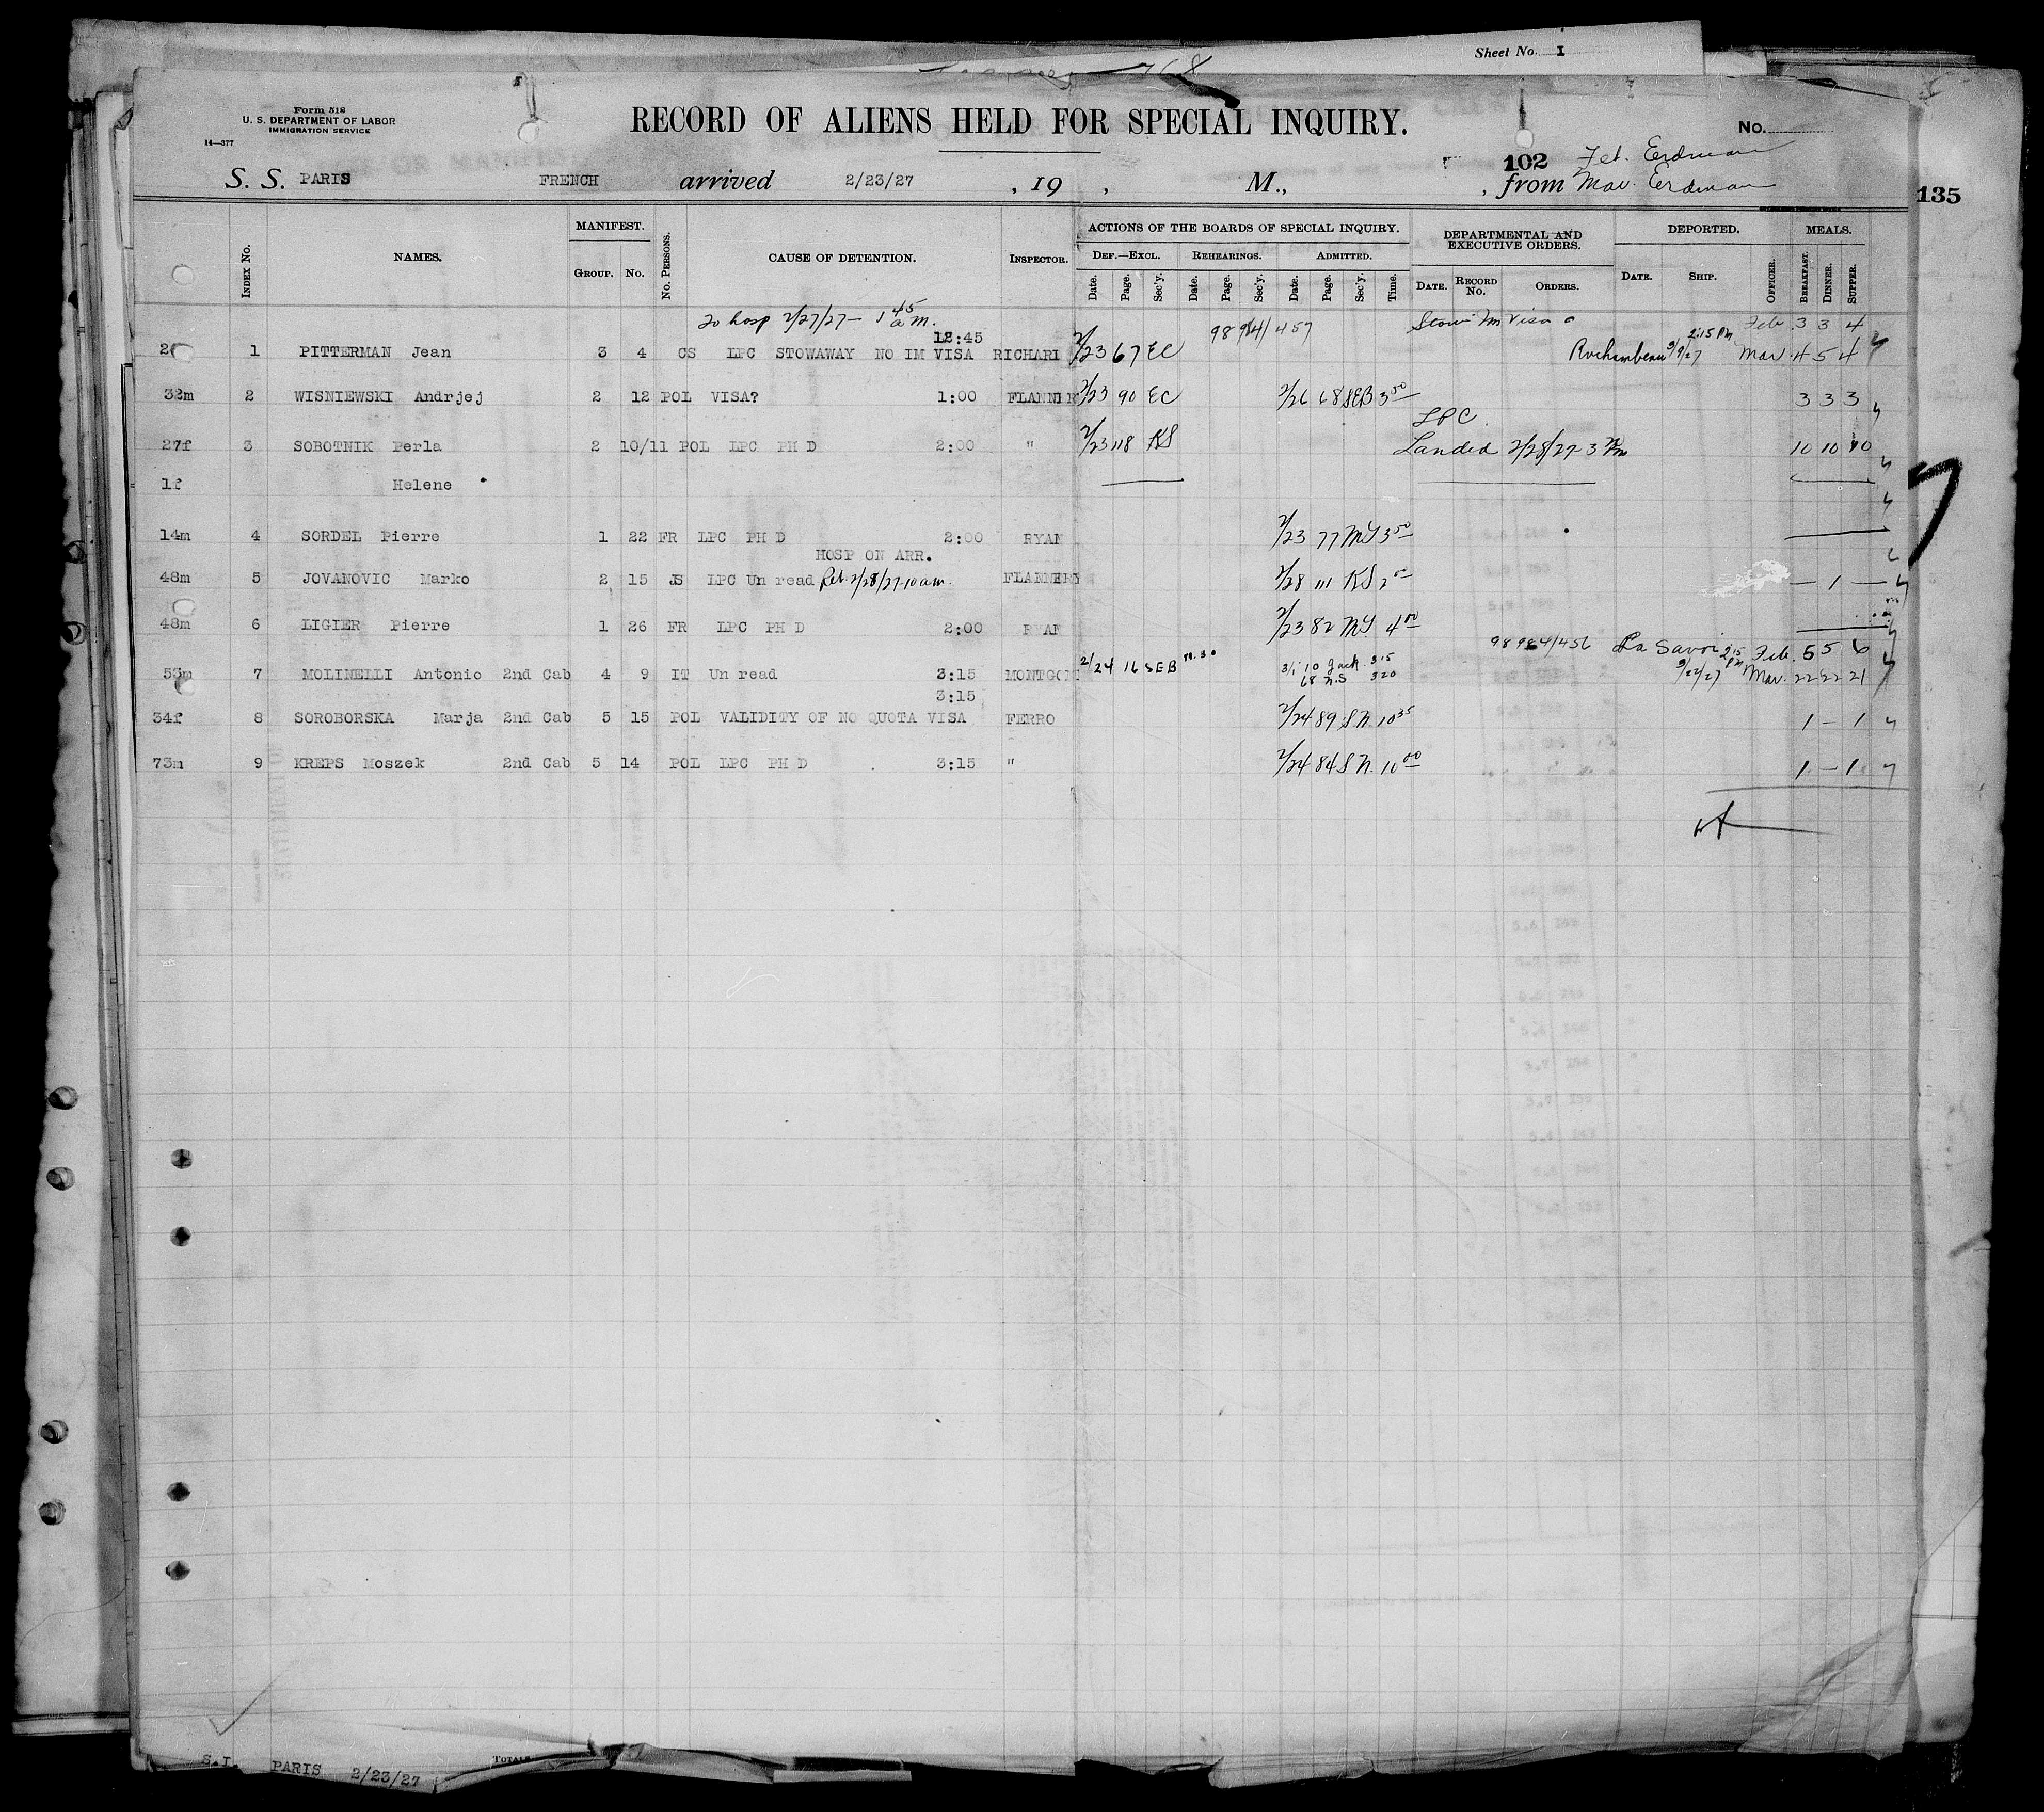 Sheet No. I
Form 518
U. S. DEPARTMENT OF LABOR
IMMIGRATION SERVICE
14—377
RECORD OF ALIENS HELD FOR SPECIAL INQUIRY.
No.
102 Feb. Erdman
S. S. PARIS FRENCH arrived 2/23/27 , 19 , M., , from Mar. Erdman
135
MANIFEST. ACTIONS OF THE BOARDS OF SPECIAL INQUIRY. DEPARTMENTAL AND EXECUTIVE ORDERS. DEPORTED. MEALS.
DEF.—EXCL. REHEARINGS. ADMITTED.
INDEX NO. NAMES. GROUP. NO. NO. PERSONS. CAUSE OF DETENTION. INSPECTOR. Date. Page. Sec'y. Date. Page. Sec'y. Date. Page. Sec'y. Time. DATE. RECORD NO. ORDERS. DATE. SHIP. OFFICER. BREAKFAST. DINNER. SUPPER.
To hosp 2/27/27 — 1 45 a m. Feb 3 3 4
12:45 2:15 PM
1 PITTERMAN Jean 3 4 CS LPC STOWAWAY NO IM VISA RICHARI 2/23 67 EC Rochambeau 3/9/27 Mar. 4 5 4
32m 2 WISNIEWSKI Andrjej 2 12 POL VISA? 1:00 FLANNER 2/23 90 EC 2/26 68 SEB 3 50 3 3 3
LPC
27f 3 SOBOTNIK Perla 2 10/11 POL LPC PH D 2:00 " 2/23 118 KS Landed 2/28/27 - 3 Pm 10 10 10
1f Helene
14m 4 SORDEL Pierre 1 22 FR LPC PH D 2:00 RYAN 2/23 77 MY 3 50
HOSP ON ARR.
48m 5 JOVANOVIC Marko 2 15 JS LPC Un read Ret. 2/28/27-10 am. FLANNERY 2/28 111 KS 2 00 — 1 —
48m 6 LIGIER Pierre 1 26 FR LPC PH D 2:00 RYAN 2/23 82 MY 4 00
98984/456 La Savoi 2 15 PM Feb. 5 5 6
55m 7 MOLINELLI Antonio 2nd Cab 4 9 IT Un read 3:15 MONTGOM 2/24 16 SEB 10.30 3/1 10 Jack 315 3/22/27 Mar. 22 22 21
68 N.S 320
3:15
34f 8 SOROBORSKA Marja 2nd Cab 5 15 POL VALIDITY OF NO QUOTA VISA FERRO 2/24 89 S N. 10 35 1 — 1
73m 9 KREPS Moszek 2nd Cab 5 14 POL LPC PH D 3:15 " 2/24 84 S N. 10 00 1 — 1
S.I. PARIS 2/23/27
TOTALS